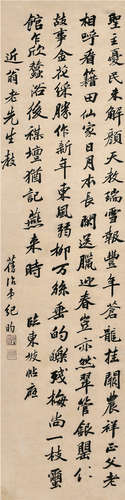 聖主憂民未解顏天教瑞雪報豐年蒼龍挂闕農祥正父老
相呼看籍田仙家日月本長閒送臘迎春豈亦然翠管銀罌
故事金花綵勝作新年東風弱柳萬絲垂的皪殘梅尚一枝璽
館乍欣蠶浴後禖壇猶記燕來時 臨東坡帖應
近翁老先生教 紀昀